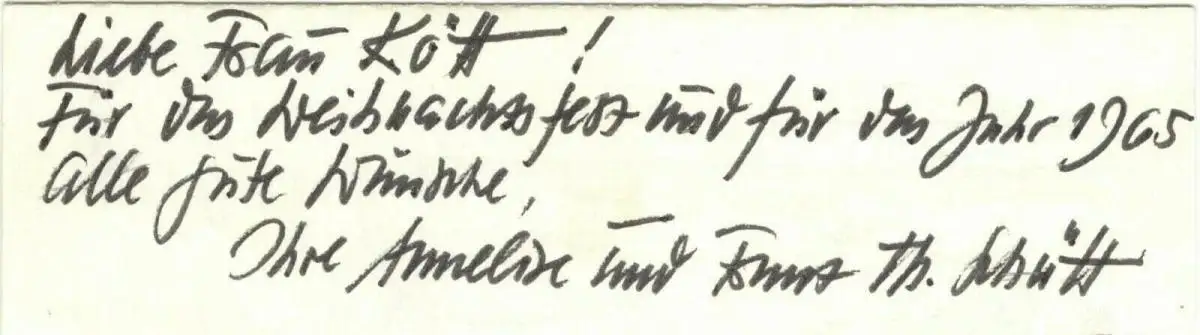 Liebe Frau Kött!
Für das Weihnachtsfest und für das Jahr 1965
alle gute Wünsche,
Ihre Annelise und Franz Th. Schütt